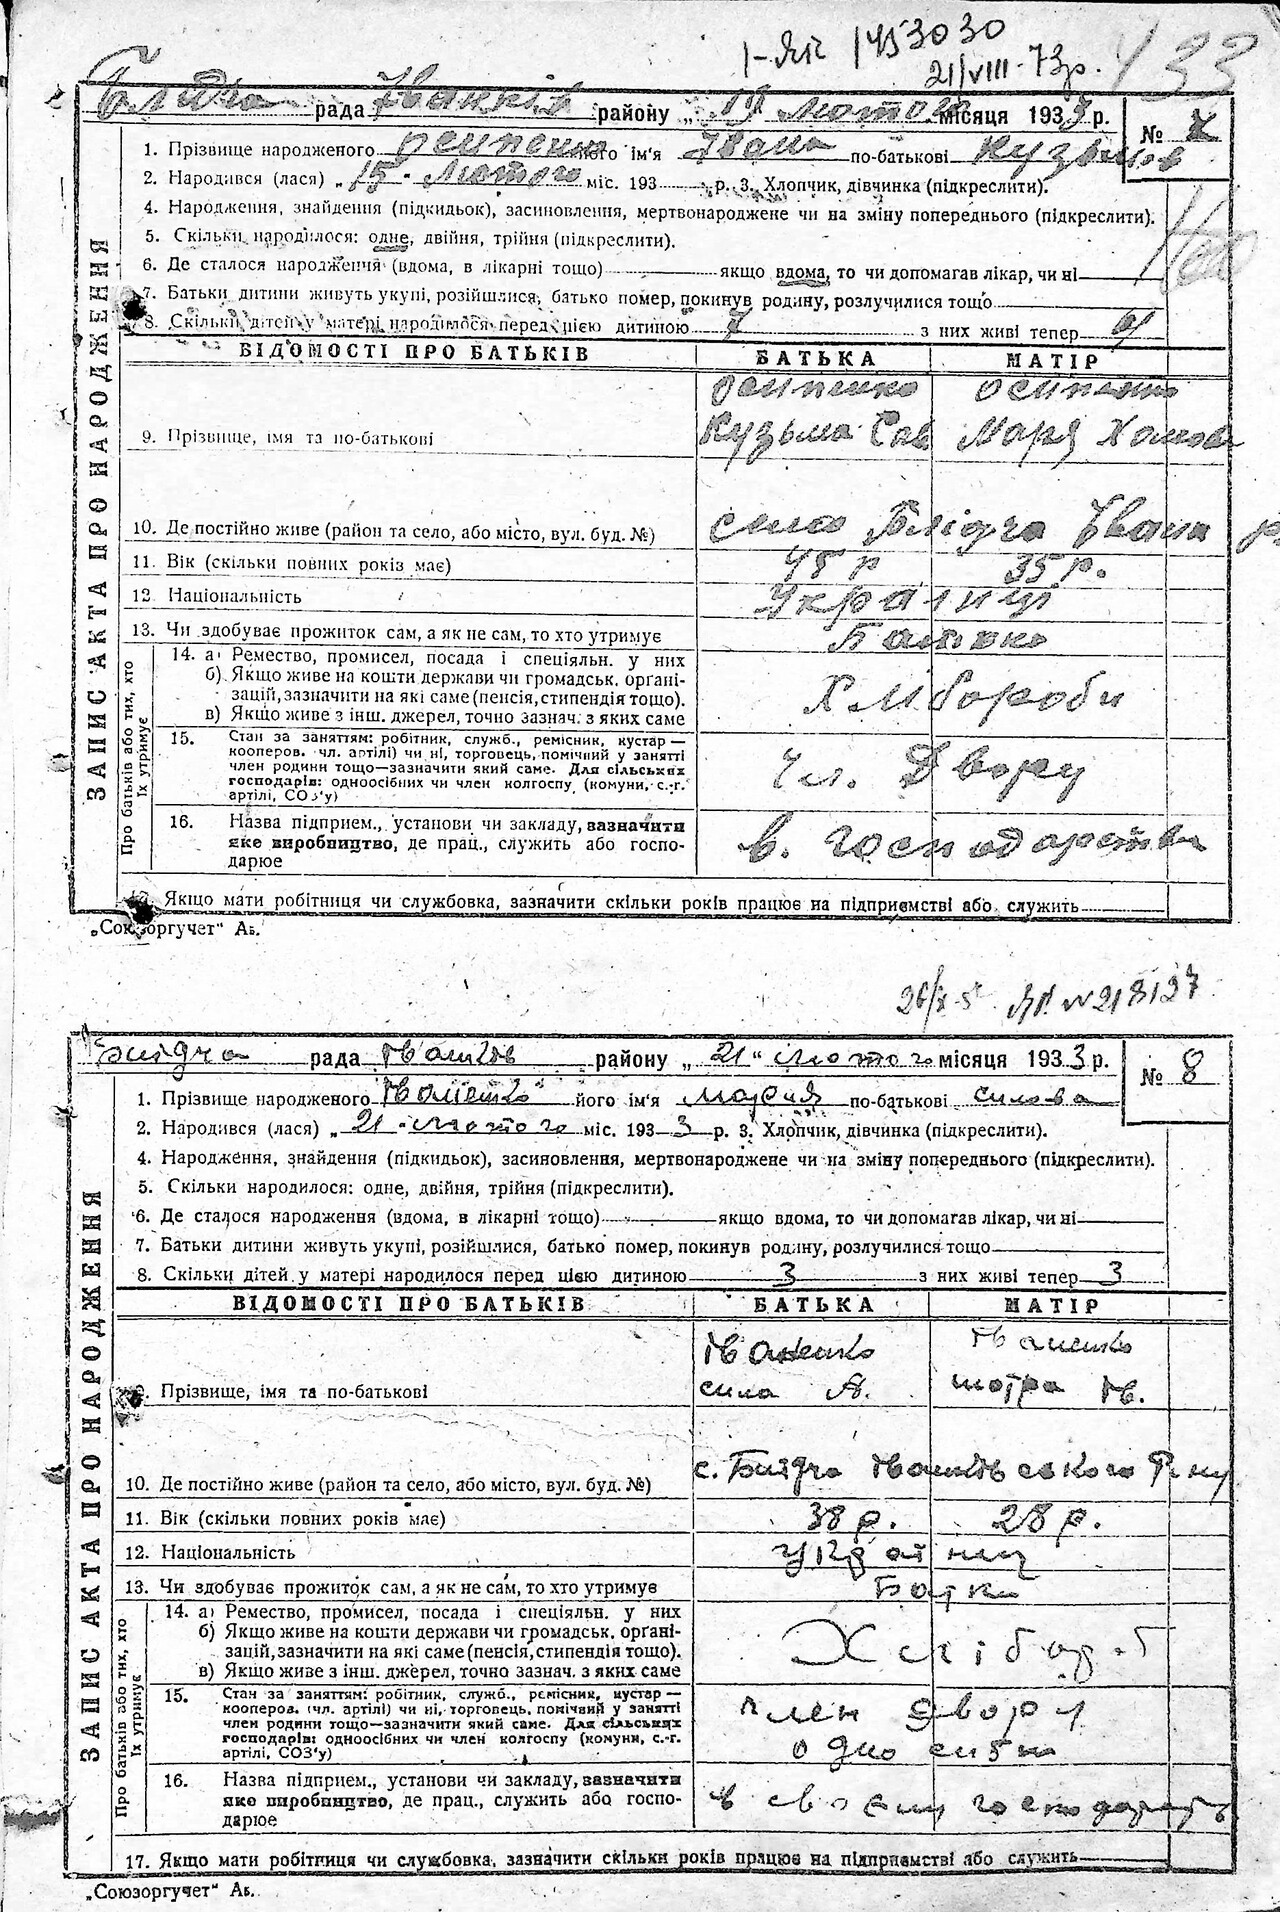 І-ЯК 1453030
21/VIII-73р. 433
Блідча рада Іванків району „ 19 лютого місяця 1933 р. № 7
1. Прізвище народженого Осипенко його ім'я Івана по-батькові Кузьмов
2. Народився (лася) „ 15 - лютого міс. 193 р. 3. Хлопчик, дівчинка (підкреслити).
4. Народження, знайдення (підкидьок), засиновлення, мертвонароджене чи на зміну попереднього (підкреслити).
5. Скільки народилося: одне, двійня, трійня (підкреслити).
6. Де сталося народження (вдома, в лікарні тощо) якщо вдома, то чи допомагав лікар, чи ні
7. Батьки дитини живуть укупі, розійшлися, батько помер, покинув родину, розлучилися тощо
8. Скільки дітей у матері народилося перед цією дитиною 7 з них живі тепер
ЗАПИС АКТА ПРО НАРОДЖЕННЯ
ВІДОМОСТІ ПРО БАТЬКІВ БАТЬКА МАТІР
Осипенко Осипенко
9. Прізвище, імя та по-батькові Кузьма Сав Марія Хомова
10. Де постійно живе (район та село, або місто, вул. буд. №) село Блідча Іванк р
11. Вік (скільки повних років має) 45 р 35 р.
12. Національність Україниці
13. Чи здобуває прожиток сам, а як не сам, то хто утримує Батько
Про батьків або тих, хто їх утримує
14. а) Ремество, промисел, посада і спеціяльн. у них
б) Якщо живе на кошти держави чи громадськ. органі-
зацій, зазначити на які саме (пенсія, стипендія тощо). Хлібороби
в) Якщо живе з інш. джерел, точно зазнач. з яких саме
15. Стан за заняттям: робітник, служб., ремісник, кустар —
кооперов. (чл. артілі) чи ні, торговець, помічний у занятті
член родини тощо—зазначити який саме. Для сільських Чл. Двору
господарів: одноосібних чи член колгоспу (комуни, с.-г.
артілі, СОЗ'у)
16. Назва підприєм., установи чи закладу, зазначити
яке виробництво, де прац., служить або госпо- в. господарстві
дарює
17. Якщо мати робітниця чи службовка, зазначити скільки років працює на підприємстві або служить
„Союзоргучет“ Аб.
26/X-5 ЯП. №218127
Блідча рада Іванків району „ 21 “ лютого місяця 1933 р. № 8
1. Прізвище народженого Іваненко його ім'я Марія по-батькові Силова
2. Народився (лася) „ 21 - лютого міс. 193 3 р. 3. Хлопчик, дівчинка (підкреслити).
4. Народження, знайдення (підкидьок), засиновлення, мертвонароджене чи на зміну попереднього (підкреслити).
5. Скільки народилося: одне, двійня, трійня (підкреслити).
6. Де сталося народження (вдома, в лікарні тощо) якщо вдома, то чи допомагав лікар, чи ні
7. Батьки дитини живуть укупі, розійшлися, батько помер, покинув родину, розлучилися тощо
8. Скільки дітей у матері народилося перед цією дитиною 3 з них живі тепер 3
ЗАПИС АКТА ПРО НАРОДЖЕННЯ
ВІДОМОСТІ ПРО БАТЬКІВ БАТЬКА МАТІР
Іваненко Іваненко
9. Прізвище, імя та по-батькові Сила Я. Мотря Ів.
10. Де постійно живе (район та село, або місто, вул. буд. №) с. Блідча Іванківського Р-ну
11. Вік (скільки повних років має) 38 р. 28 р.
12. Національність Українц
13. Чи здобуває прожиток сам, а як не сам, то хто утримує Батки
Про батьків або тих, хто їх утримує
14. а) Ремество, промисел, посада і спеціяльн. у них
б) Якщо живе на кошти держави чи громадськ. органі-
зацій, зазначити на які саме (пенсія, стипендія тощо). Хлібороб
в) Якщо живе з інш. джерел, точно зазнач. з яких саме
15. Стан за заняттям: робітник, служб., ремісник, кустар —
кооперов. (чл. артілі) чи ні, торговець, помічний у занятті член двору
член родини тощо—зазначити який саме. Для сільських
господарів: одноосібних чи член колгоспу (комуни, с.-г.
артілі, СОЗ'у)
16. Назва підприєм., установи чи закладу, зазначити
яке виробництво, де прац., служить або госпо- в своему господарств
дарює
17. Якщо мати робітниця чи службовка, зазначити скільки років працює на підприємстві або служить
„Союзоргучет“ Аб.